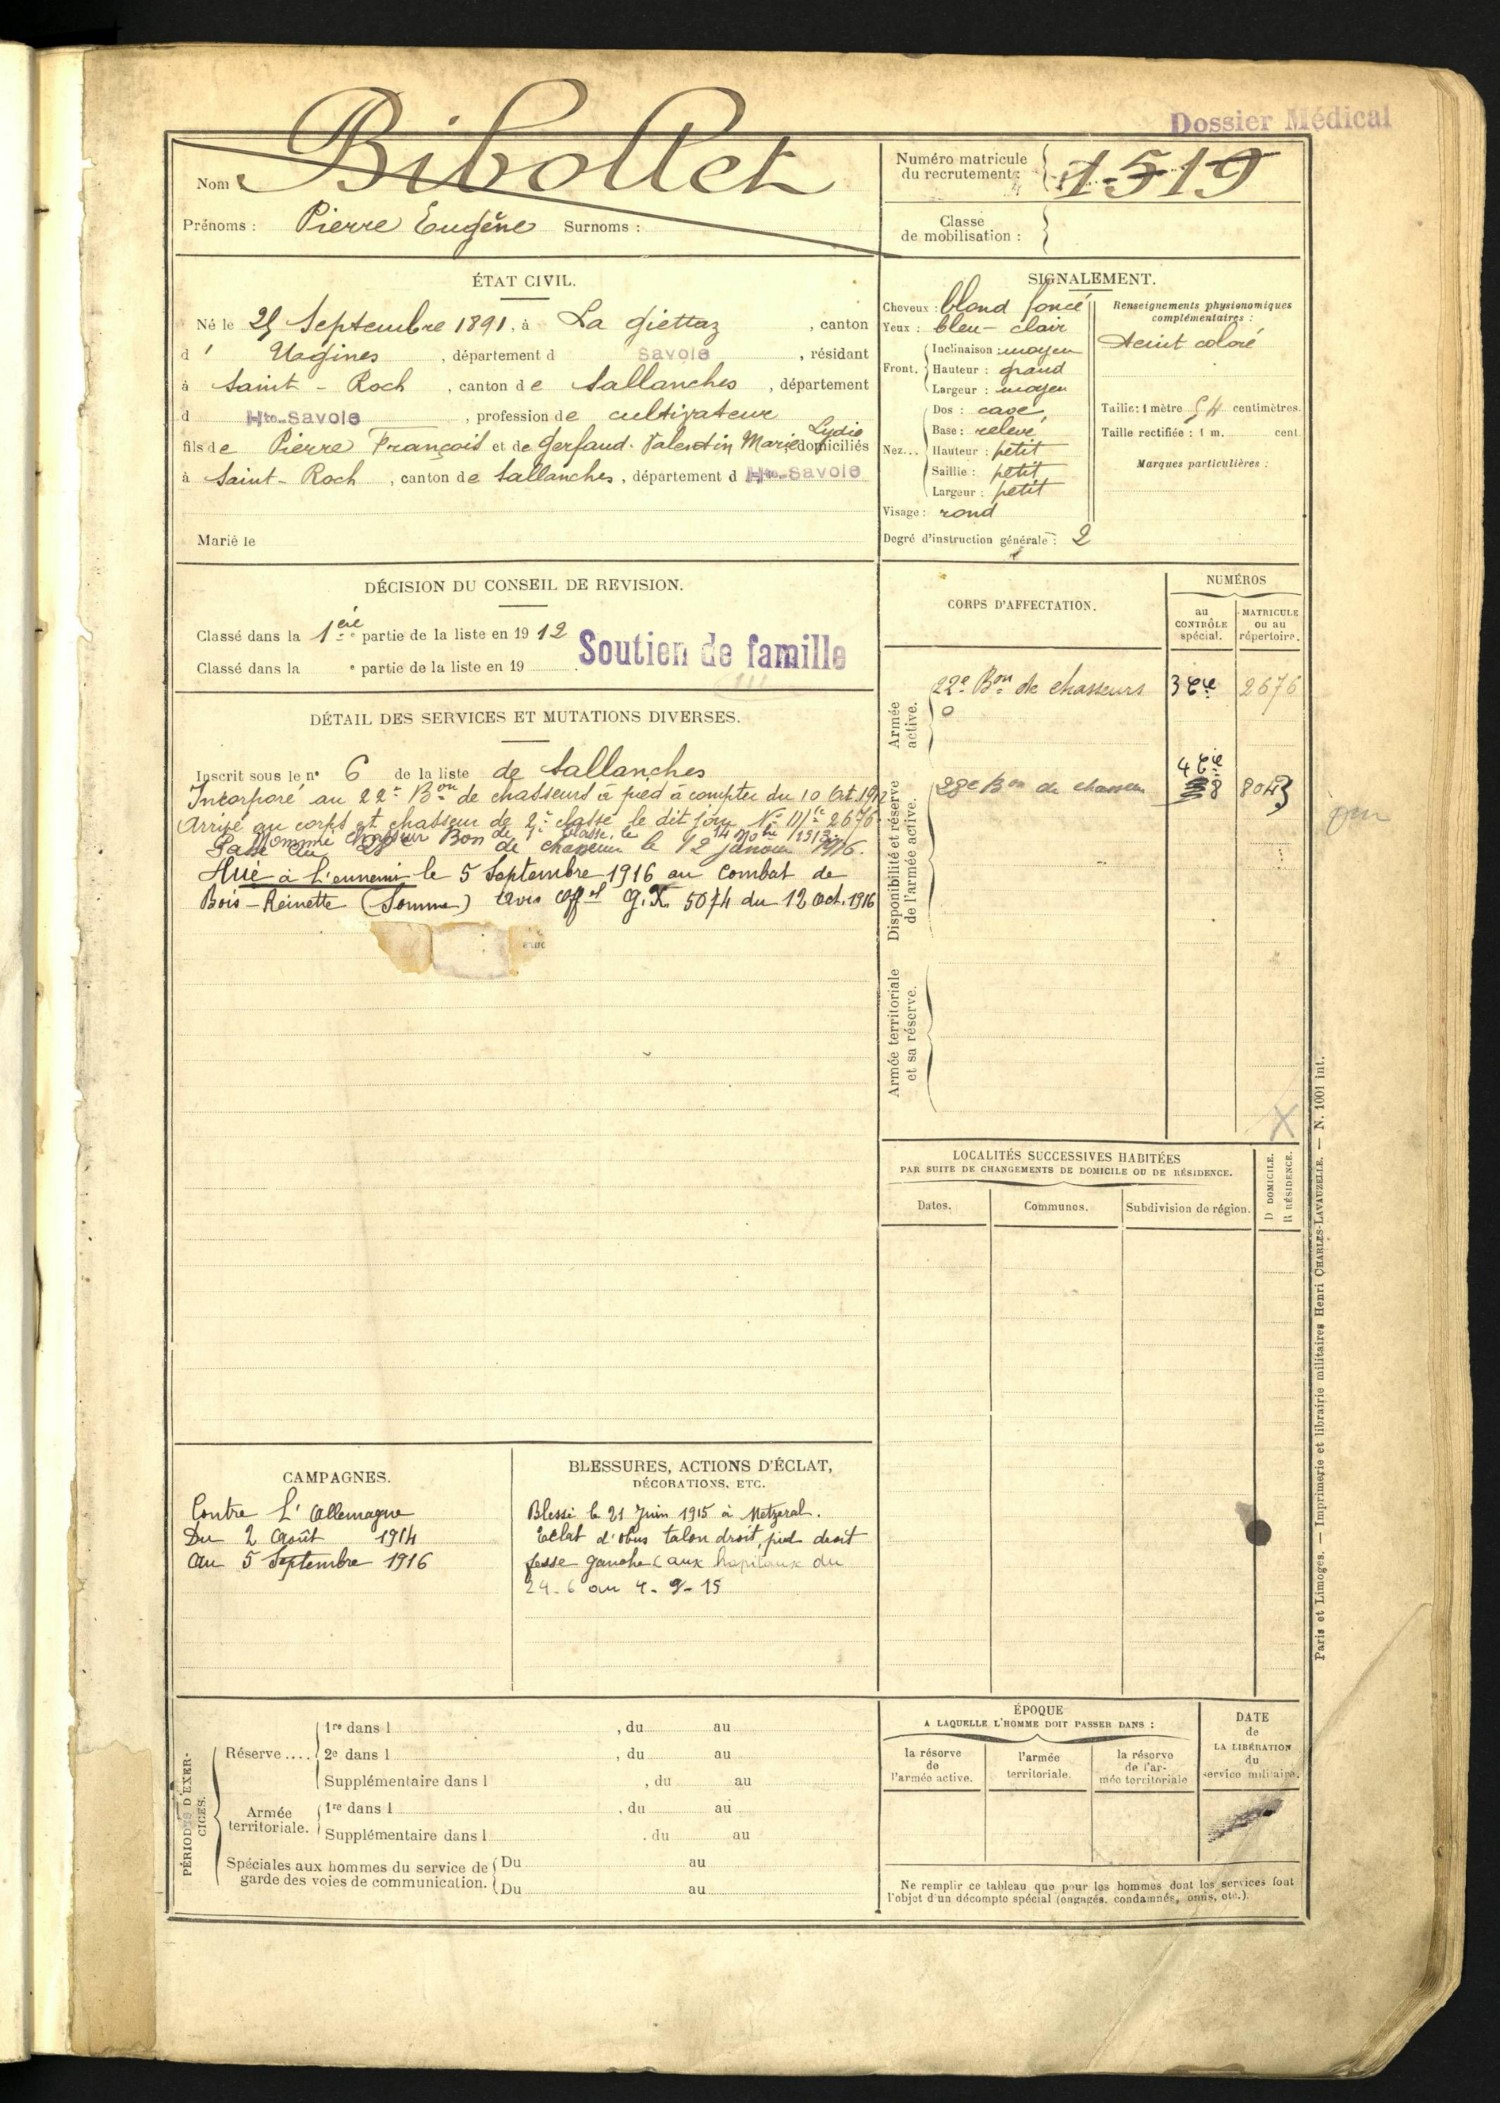 Dossier Médical
Nom Bibollet
Prénoms : Pierre Eugène Surnoms :
Numéro matricule
du recrutement : 1519
Classe
de mobilisation :
ÉTAT CIVIL.
Né le 25 Septembre 1891, à La Giettaz, canton
d' Ugines, département d Savoie, résidant
à Saint-Roch, canton de Sallanches, département
d Hte-Savoie, profession de cultivateur
Lydie
fils de Pierre François et de Gerfaud-Valentin Marie domiciliés
à Saint-Roch, canton de Sallanches, département d Hte-Savoie
Marié le
SIGNALEMENT.
Cheveux : blond foncé
Yeux : bleu-clair
Front. Inclinaison : moyen
Hauteur : grand
Largeur : moyen
Nez... Dos : cave
Base : relevé
Hauteur : petit
Saillie : petit
Largeur : petit
Visage : rond
Degré d'instruction générale : 2
Renseignements physionomiques
complémentaires :
Teint coloré
Taille : 1 mètre 54 centimètres.
Taille rectifiée : 1 m. cent.
Marques particulières :
DÉCISION DU CONSEIL DE REVISION.
Classé dans la 1ère partie de la liste en 1912
Classé dans la e partie de la liste en 19
Soutien de famille
DÉTAIL DES SERVICES ET MUTATIONS DIVERSES.
Inscrit sous le n° 6 de la liste de Sallanches
Incorporé au 22e Bon de chasseurs à pied à compter du 10 Oct. 1912
Arrivé au corps et chasseur de 2e classe le dit jour N° 2676
Nommé chasseur de 1e classe le 14 Nobre 1913
Passé au 28e Bon de chasseurs le 12 janvier 1916.
Tué à l'ennemi le 5 Septembre 1916 au combat de
Bois-Reinette (Somme) Avis Offel G.K. 5074 du 12 Oct. 1916
CORPS D'AFFECTATION.
NUMÉROS
au
CONTRÔLE
spécial.
MATRICULE
ou au
répertoire.
Armée
active.
22e Bon de chasseurs 3 Cie 2676
Disponibilité et réserve
de l'armée active.
4 Cie
28e Bon de chasseurs 8 8043
Armée territoriale
et sa réserve.
X
LOCALITÉS SUCCESSIVES HABITÉES
PAR SUITE DE CHANGEMENTS DE DOMICILE OU DE RÉSIDENCE.
Dates.
Communes.
Subdivision de région.
D DOMICILE.
R RÉSIDENCE.
CAMPAGNES.
Contre l'Allemagne
Du 2 Août 1914
au 5 Septembre 1916
BLESSURES, ACTIONS D'ÉCLAT,
DÉCORATIONS, ETC.
Blessé le 21 Juin 1915 à Metzeral.
Eclat d'obus talon droit, pied droit
fesse gauche (aux hopitaux du
24-6 au 4-9-15
PÉRIODES D'EXER-
CICES.
Réserve....
1re dans l , du au
2e dans l , du au
Supplémentaire dans l , du au
Armée
territoriale.
1re dans l , du au
Supplémentaire dans l , du au
Spéciales aux hommes du service de
garde des voies de communication.
Du au
Du au
ÉPOQUE
A LAQUELLE L'HOMME DOIT PASSER DANS :
la réserve
de
l'armée active.
l'armée
territoriale.
la réserve
de l'ar-
mée territoriale
DATE
de
LA LIBÉRATION
du
service militaire.
Ne remplir ce tableau que pour les hommes dont les services font
l'objet d'un décompte spécial (engagés, condamnés, omis, etc.).
Paris et Limoges. — Imprimerie et librairie militaires Henri CHARLES-LAVAUZELLE. — N. 1001 int.